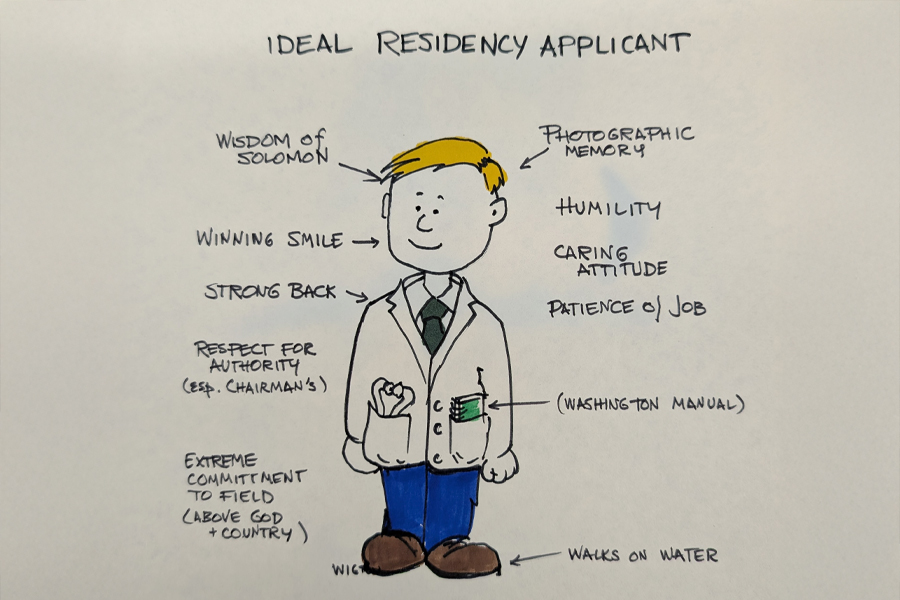 IDEAL RESIDENCY APPLICANT
WISDOM of
SOLOMON
PHOTOGRAPHIC
MEMORY
HUMILITY
WINNING SMILE
CARING
ATTITUDE
STRONG BACK
PATIENCE of JOB
RESPECT FOR
AUTHORITY
(ESP. CHAIRMAN'S)
(WASHINGTON MANUAL)
EXTREME
COMMITTMENT
TO FIELD
(ABOVE GOD
+ COUNTRY)
WALKS ON WATER